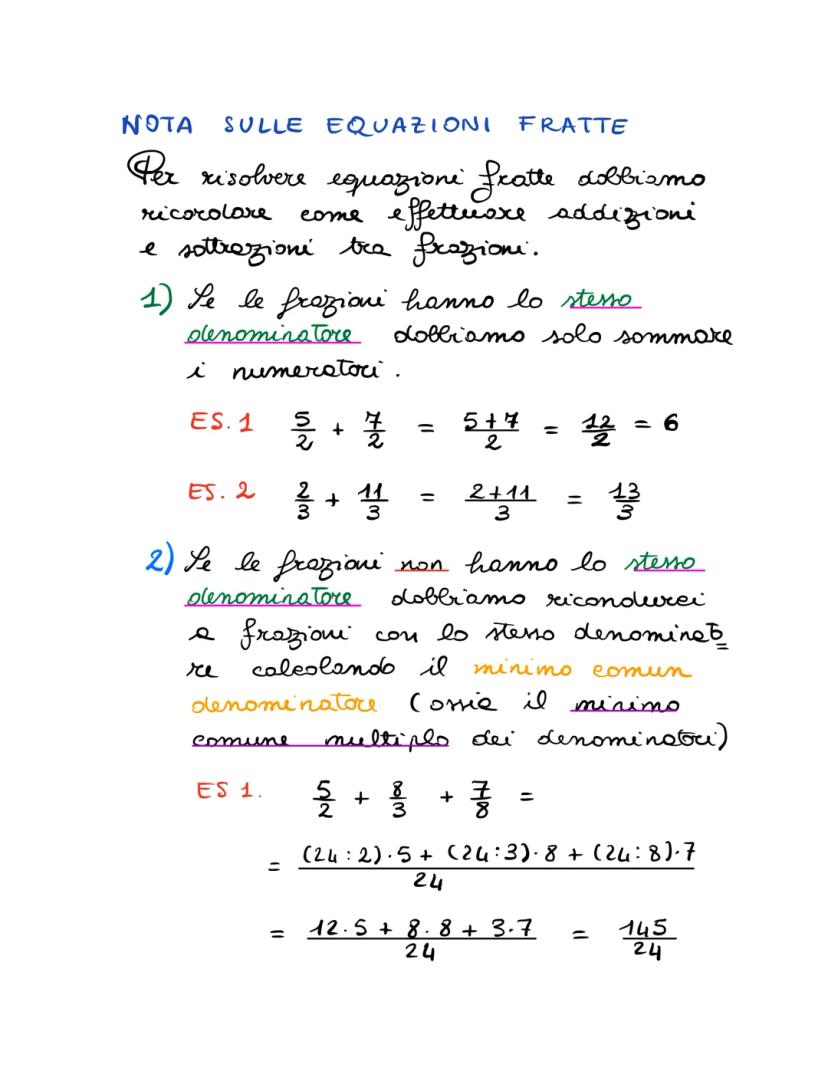 NOTA SULLE EQUAZIONI FRATTE
Per risolvere equazioni fratte dobbiamo
ricordare come effettuare addizioni
e sottrazioni tra frazioni.
1) Se le frazioni hanno lo stesso
denominatore dobbiamo solo sommare
i numeratori.
ES. 1 5/2 + 7/2 = (5+7)/2 = 12/2 = 6
ES. 2 2/3 + 11/3 = (2+11)/3 = 13/3
2) Se le frazioni non hanno lo stesso
denominatore dobbiamo ricondurci
a frazioni con lo stesso denominato
re calcolando il minimo comun
denominatore (ossia il minimo
comune multiplo dei denominatori)
ES 1. 5/2 + 8/3 + 7/8 =
= ((24:2)·5 + (24:3)·8 + (24:8)·7)/24
= (12·5 + 8·8 + 3·7)/24 = 145/24